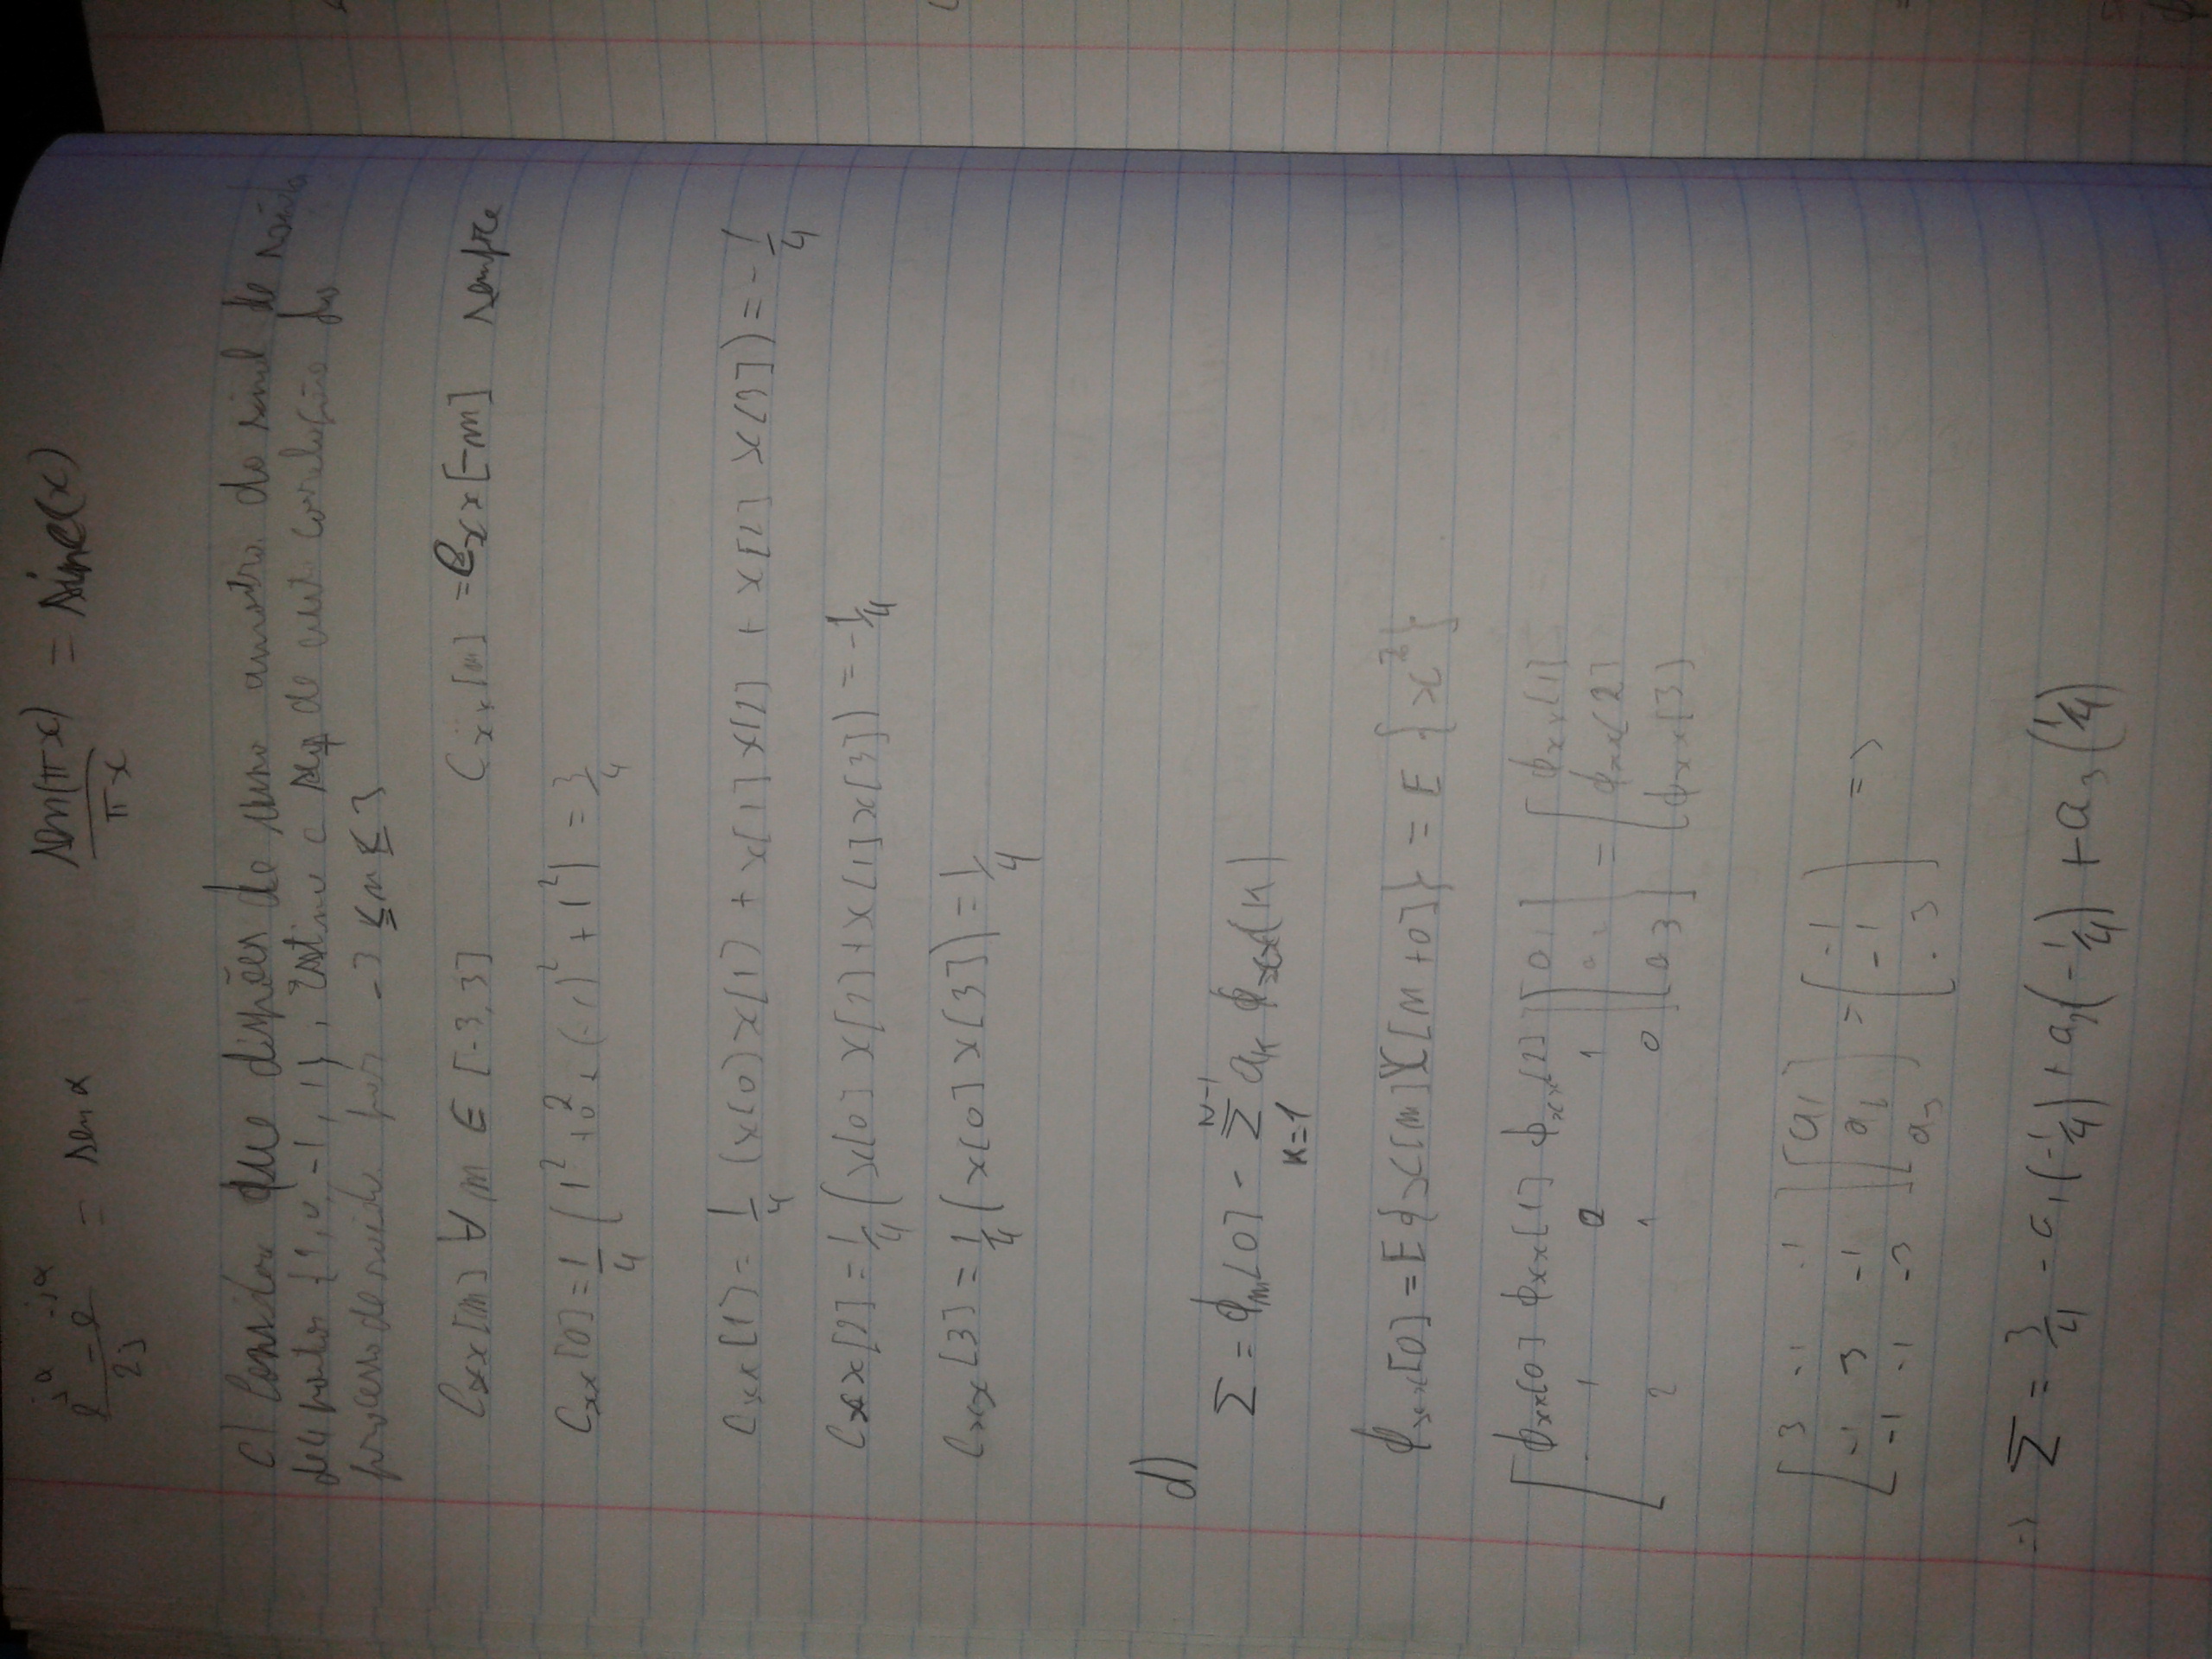 e^{jα} - e^{-jα} / 2j = sen α    sen(πx) / πx = sinc(x)
c) Considere que dispões de uma amostra do sinal de ruído
de 4 pontos {1, 0, -1, 1}, Estime a seq de auto correlação do
processo de ruído para -3 ≤ m ≤ 3
Cxx[m] ∀ m ∈ [-3,3]    Cxx[m] = Cxx[-m] sempre
Cxx[0] = 1/4 (1² + 0² + (-1)² + 1²) = 3/4
Cxx[1] = 1/4 (x[0]x[1] + x[1]x[2] + x[2]x[3]) = -1/4
Cxx[2] = 1/4 (x[0]x[2] + x[1]x[3]) = -1/4
Cxx[3] = 1/4 (x[0]x[3]) = 1/4
d)
Σ = ϕ[0] - Σ_{K=1}^{N-1} a_K ϕxx(K)
ϕxx[0] = E{x[m]x[m+0]} = E{x²}
[ϕxx[0] ϕxx[1] ϕxx[2]] [a1] = [ϕxx[1]
1 0 1 a2 ϕxx[2]
2 1 0] a3] ϕxx[3]
[3 -1 -1] [a1] = [-1]
-1 3 -1 a2 -1 =>
-1 -1 -3 a3 3
=> Σ = 3/4 - a1(-1/4) + a2(-1/4) + a3(1/4)